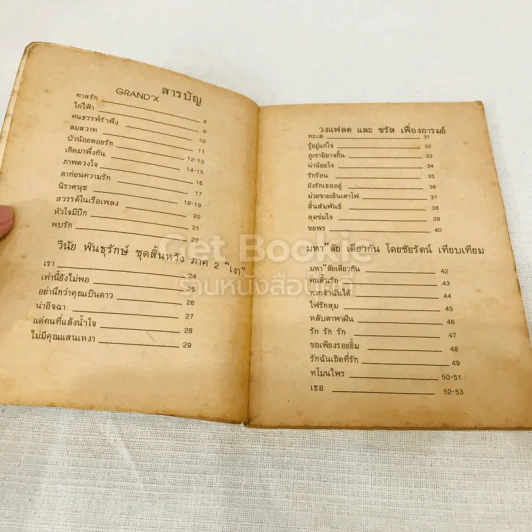 สารบัญ
GRAND'X
ทาสรัก 8
ใกไฟ้า 8
คนธรรพ์รำพึง 9
ลมสวาท 9
บัวน้อยคอยรัก 10
เกิดมาพึ่งกัน 11
ภาพดวงใจ 12-13
ลาก่อนความรัก 14-15
นิราศนุช 16
สวรรค์ในเรือเพลง 17
หัวใจมีปีก 18-19
พบรัก 20
21
22
วินัย พันธุรักษ์ ชุดสิ้นหวัง ภาค 2 "เงา"
เรา 24
เท่านี้ยังไม่พอ 24
อย่านึกว่าคุณเป็นดาว 25
น่าอิจฉา 26
แด่คนที่แล้งน้ำใจ 27
ไม่มีคุณแสนเหงา 28
29
วงแฟลต และ ชรัส เฟื่องอารมย์
ทะเล 31
รู้อยู่แก่ใจ 32
ภูเขามิอาจกั้น 33
น่าน้อยใจ 34
รักร้อน 35
ยังรักเธออยู่ 36
ม่วยขายเย็นตาโฟ 37
สิ้นสัมพันธ์ 38
สุดข่มใจ 39
ขอพร 40
มหา"ลัย เดียวกัน โดยชัยรัตน์ เทียบเทียม
มหา"ลัยเดียวกัน 42
คนสิ้นรัก 43
หากจำฉันได้ 44
ไฟรักสุม 45
หลับตาพาฝัน 46
รัก รัก รัก 47
ขอเพียงรอยยิ้ม 48
รักฉันเยิดที่รัก 49
ทโมนไพร 50-51
เธอ 52-53
Get Bookie
ร้านหนังสือเก่าดี